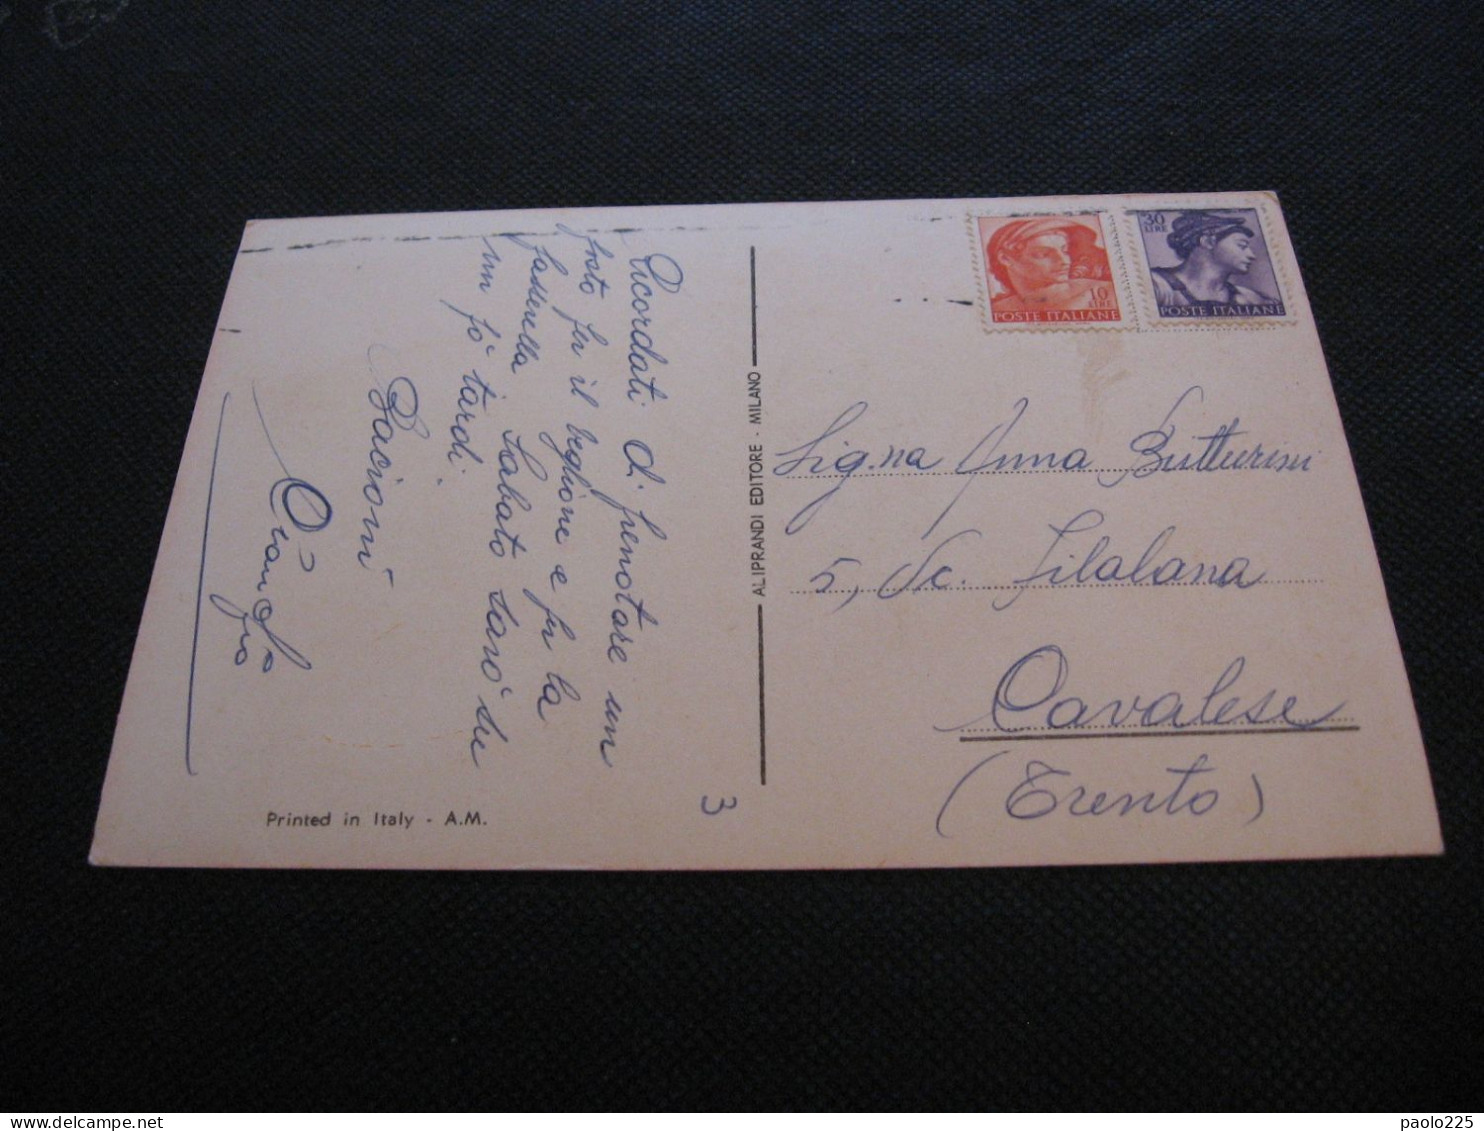 Ricordati di prenotare un
posto per il veglione e per la
passerella Sabato sarò su
un po' tardi.
Bacioni
ALIPRANDI EDITORE - MILANO
Printed in Italy - A.M.
3
10
LIRE
POSTE ITALIANE
30
LIRE
POSTE ITALIANE
Sig.na Anna Butturini
5, Sc. Filalana
Cavalese
(Trento)
paolo225